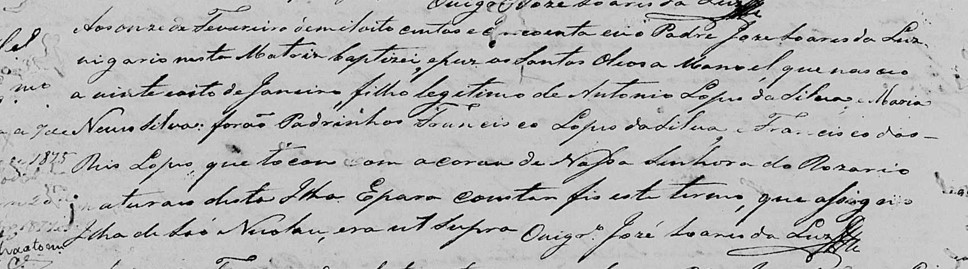 O Vigrº José Soares da Luz
Aos onze de Fevereiro de mil oito centos e cincoenta eu o Padre José Soares da Luz
vigario nesta Matriz baptizei, e puz os Santos Oleos a Manoel que nasceo
a vinte e oito de Janeiro, filho legitimo de Antonio Lopes da Silva e Maria
Neves Silva: forão Padrinhos Francisco Lopes da Silva e Francisco dos
Reis Lopes, que tocou com a coroa de Nossa Senhora do Rozario
naturaes desta Ilha. E para constar fiz este termo, que assigno
Ilha de São Nicolau, era ut supra O Vigrº José Soares da Luz
1875